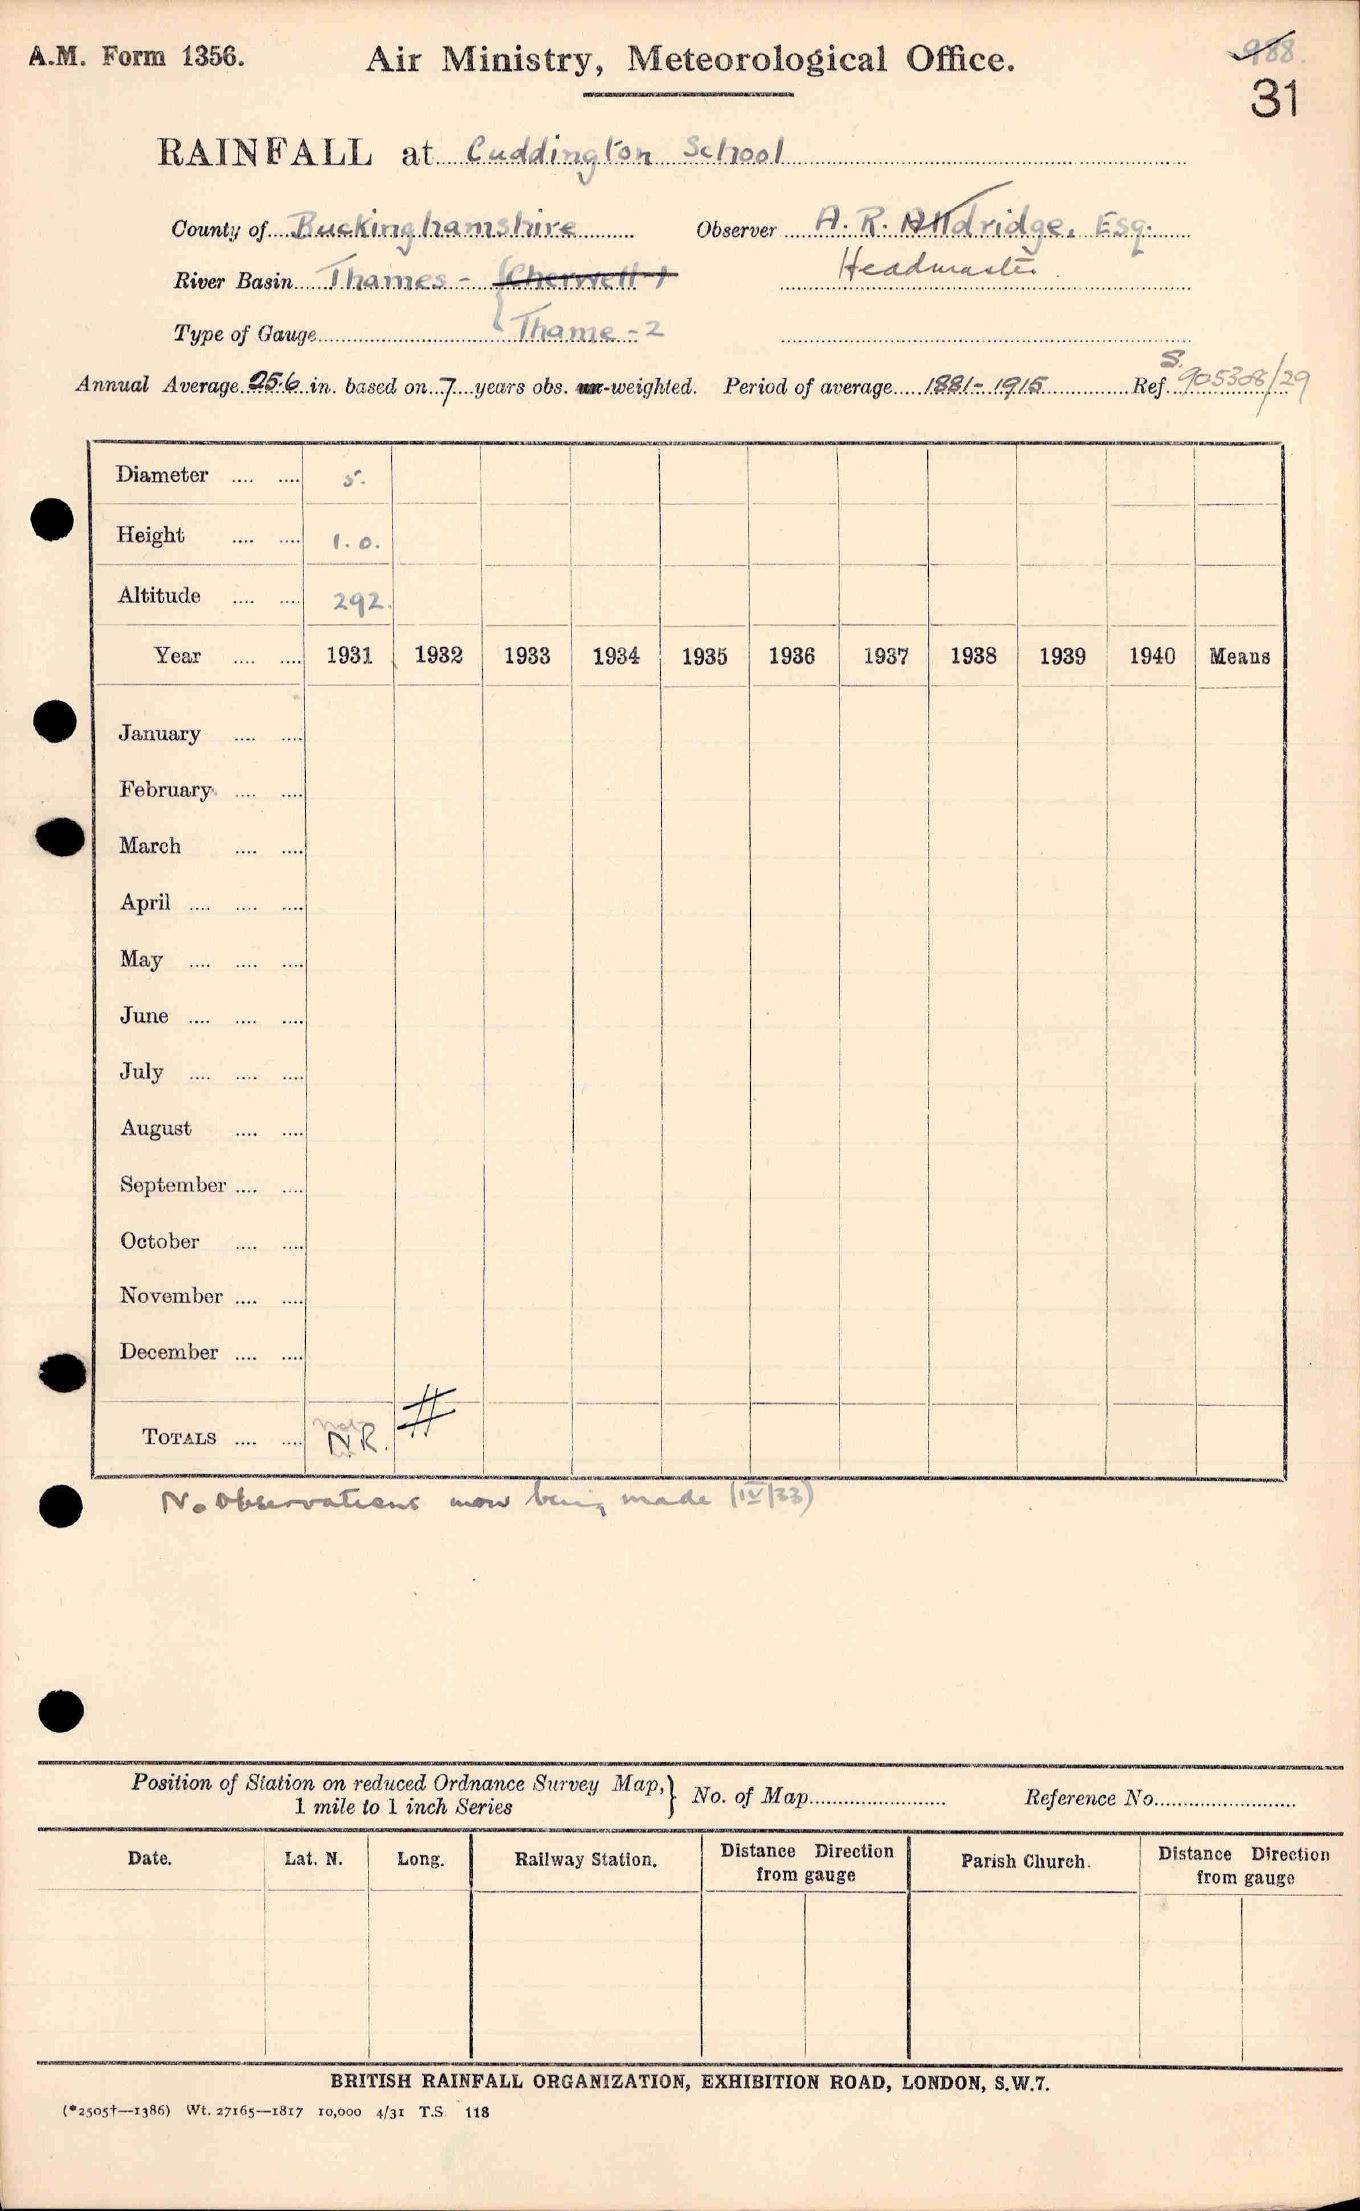 A.M. Form 1356.
Air Ministry, Meteorological Office.
988.
31
RAINFALL at Cuddington School
County of Buckinghamshire Observer A. R. Alldridge, Esq.
River Basin Thames - (Cherwell-1 Headmaster.
Type of Gauge Thame-2
Annual Average 25.6 in. based on 7 years obs. un-weighted. Period of average 1881-1915 Ref. S.905308/29
Diameter .... .... 5.
Height .... .... 1.0.
Altitude .... .... 292.
Year .... .... 1931 1932 1933 1934 1935 1936 1937 1938 1939 1940 Means
January .... ....
February .... ....
March .... ....
April .... .... ....
May .... .... ....
June .... .... ....
July .... .... ....
August .... ....
September .... ....
October .... ....
November .... ....
December .... ....
TOTALS .... .... N.R. #
No observations now being made (IV/33)
Position of Station on reduced Ordnance Survey Map, } No. of Map Reference No.
1 mile to 1 inch Series
Date. Lat. N. Long. Railway Station. Distance Direction from gauge Parish Church. Distance Direction from gauge
BRITISH RAINFALL ORGANIZATION, EXHIBITION ROAD, LONDON, S.W.7.
(*2505†—1386) Wt. 27165—1817 10,000 4/31 T.S. 118